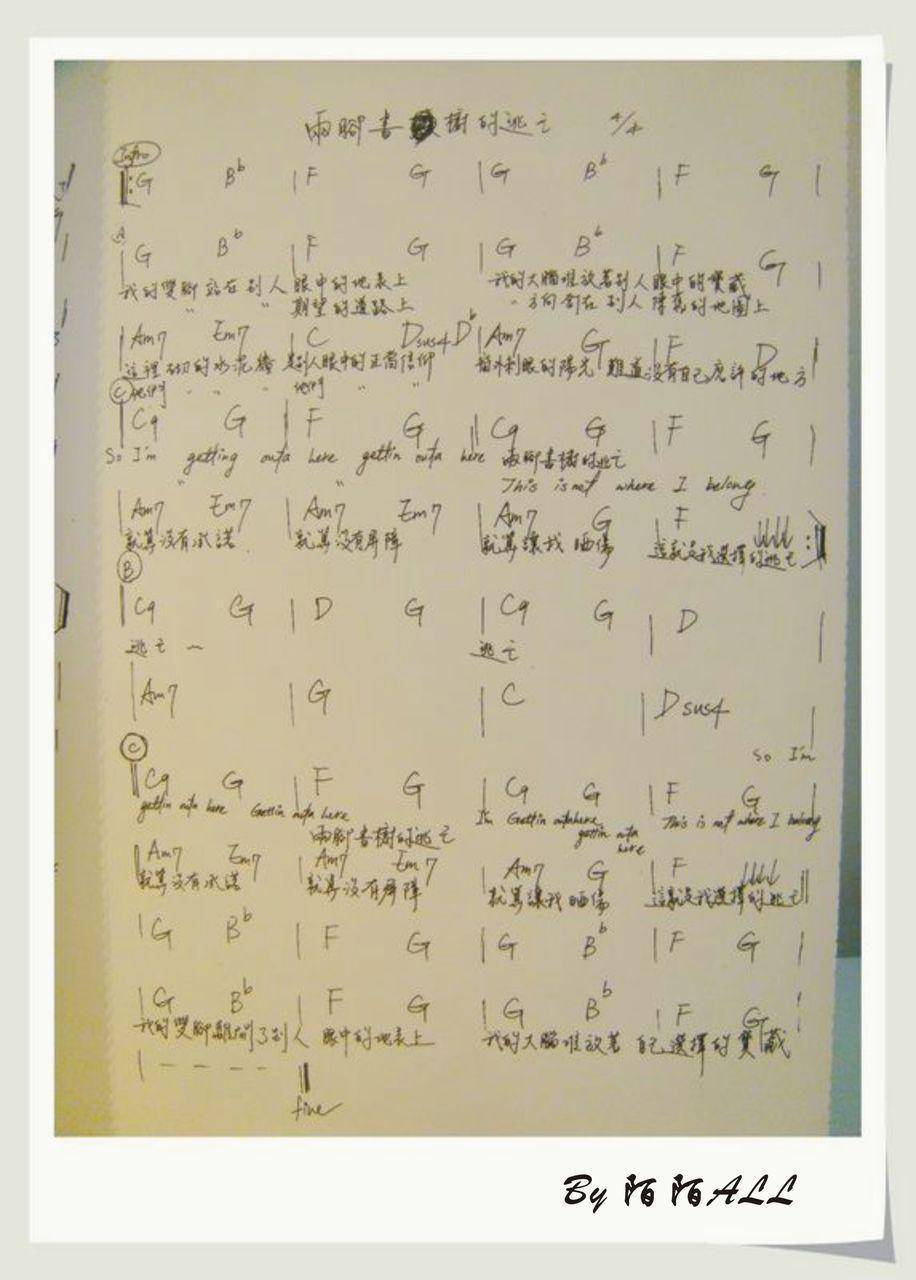 兩腳書樹的逃亡 4/4
Intro
G Bb | F G | G Bb | F G |
A
G Bb | F G | G Bb | F G |
我的雙腳站在別人眼中的地表上 我的大腦堆放著別人眼中的寶藏
" " " 期望的道路上 " 方向 在別人 的地圖上
Am7 Em7 | C Dsus4 Db | Am7 G | F D |
這裡 砌的水泥牆 是別人眼中的正當信仰 牆外刺眼的陽光 難道沒有自己應許的地方
他們 " " " 他們 " " "
C
C9 G | F G || C9 G | F G |
So I'm getting outa here gettin outa here 兩腳書樹的逃亡
" " This is not where I belong
Am7 Em7 | Am7 Em7 | Am7 G | F
就算沒有承諾 就算沒有屏障 就算讓我曬傷 這就是我選擇的逃亡
B
C9 G | D G | C9 G | D |
逃亡~ 逃亡
Am7 | G | C | Dsus4
So I'm
C
C9 G | F G | C9 G | F G |
gettin outa here Gettin outa here I'm Gettin outa here gettin outa here This is not where I belong
兩腳書樹的逃亡
Am7 Em7 | Am7 Em7 | Am7 G | F
就算沒有承諾 就算沒有屏障 就算讓我曬傷 這就是我選擇的逃亡
G Bb | F G | G Bb | F G |
G Bb | F G | G Bb | F G
我的雙腳離開了別人 眼中的地表上 我的大腦堆放著 自己選擇的寶藏
| - - - - ||
fine
By 陌陌ALL